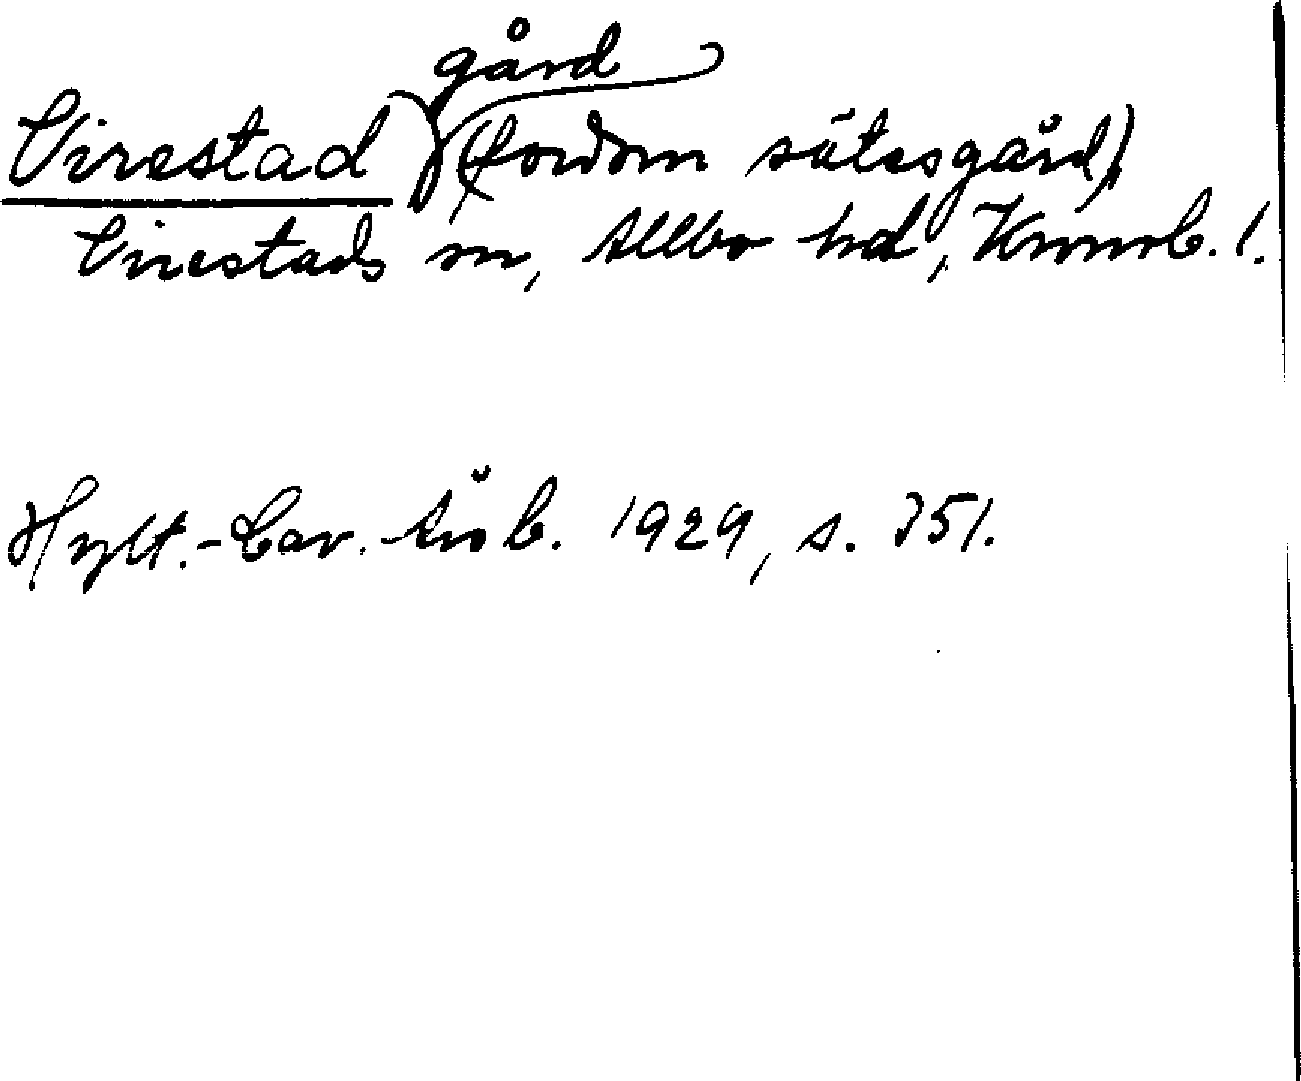 gård
Virestad (fordom sätesgård),
Virestads sn, Allbo hd, Kronob. l.
Hylt.-Cav. 1929, s. 351.